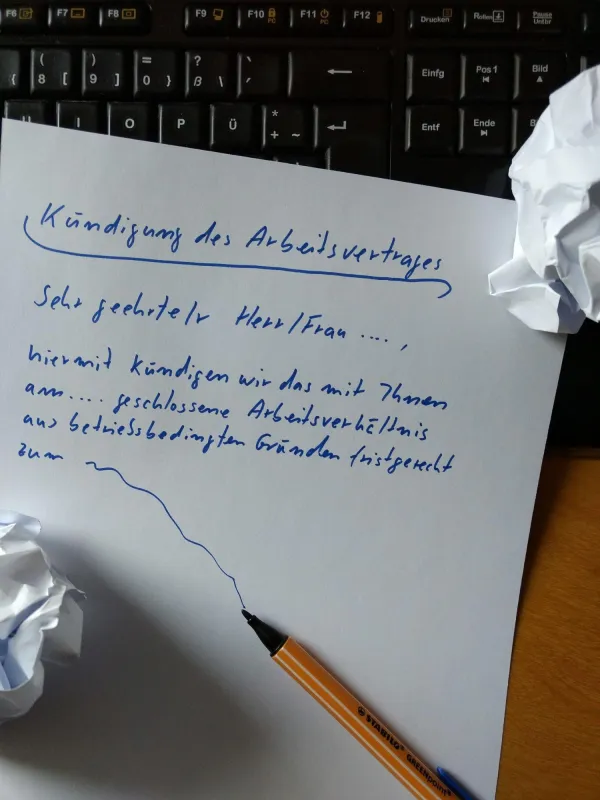 F6 F7 F8 F9 F10 PC F11 PC F12 Drucken Rollen Pause Untbr
( 8 [ ) 9 ] = 0 } ? ß \ ` ´ Einfg Pos 1 Bild
U I O P Ü * + ~ Entf Ende
Kündigung des Arbeitsvertrages
Sehr geehrte/r Herr/Frau ....,
hiermit kündigen wir das mit Ihnen
am .... geschlossene Arbeitsverhältnis
aus betriebsbedingten Gründen fristgerecht
zum
STABILO GREENpoint